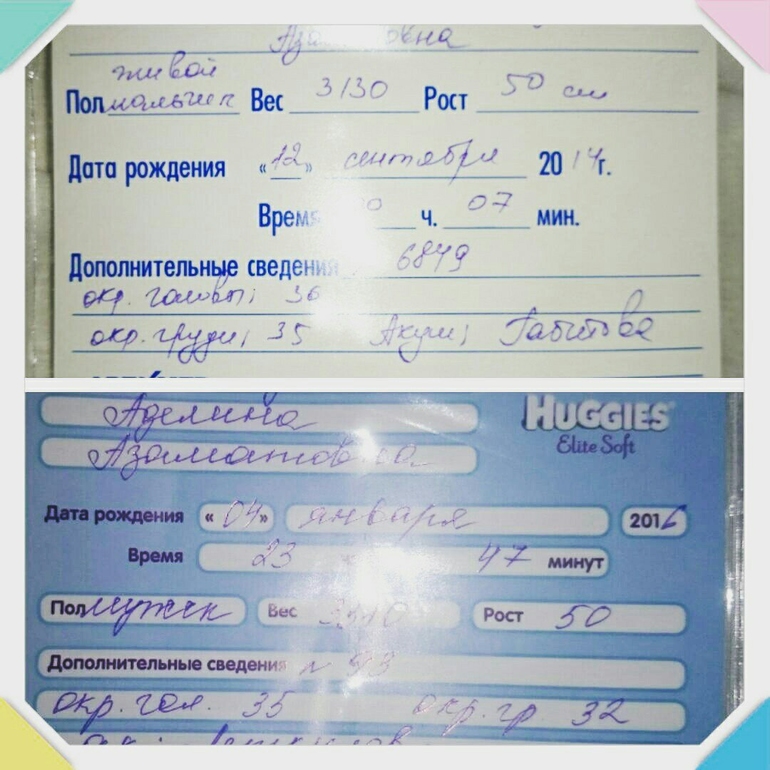 живой
Пол мальчик Вес 3130 Рост 50 см
Дата рождения «12» сентября 2014г.
Время ч. 07 мин.
Дополнительные сведения 6849
окр. головы; 36
окр. груди; 35 Акуш; Габитова
Аделина
HUGGIES
Elite Soft
Дата рождения «04» января 2016
Время 23 47 минут
Пол мужск Вес Рост 50
Дополнительные сведения
окр. гол. 35 окр. гр 32